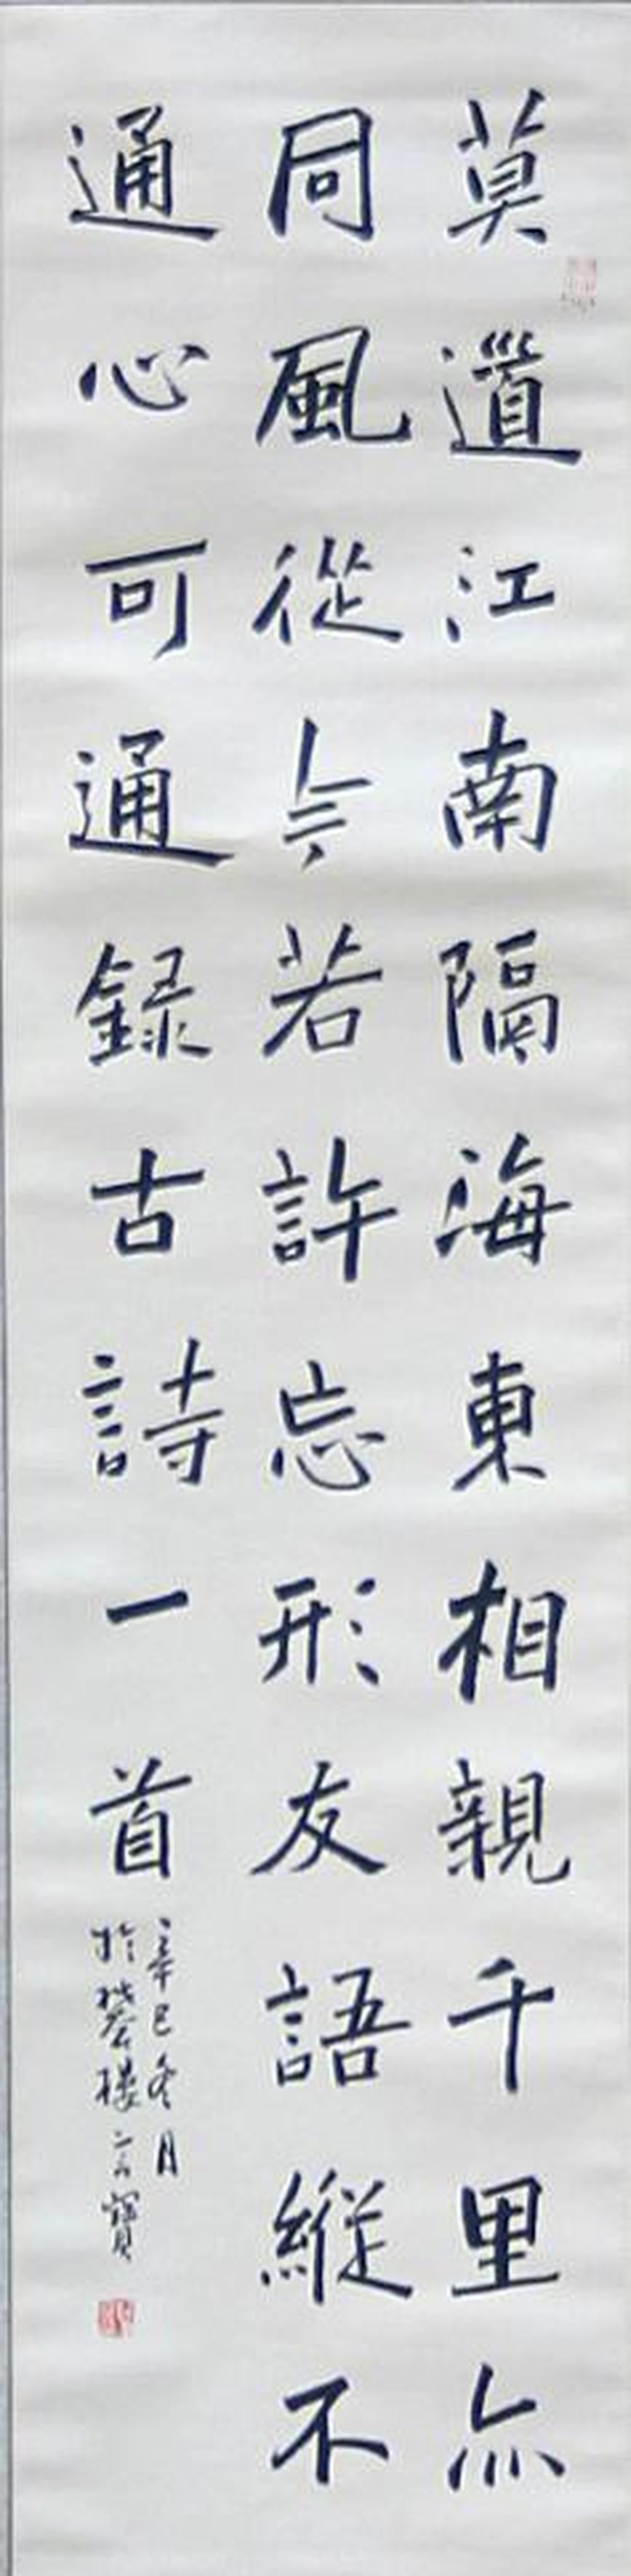 莫道江南隔海東相親千里亦
同風從今若許忘形友語縱不
通心可通録古詩一首
辛巳冬月
於攀樓言寶